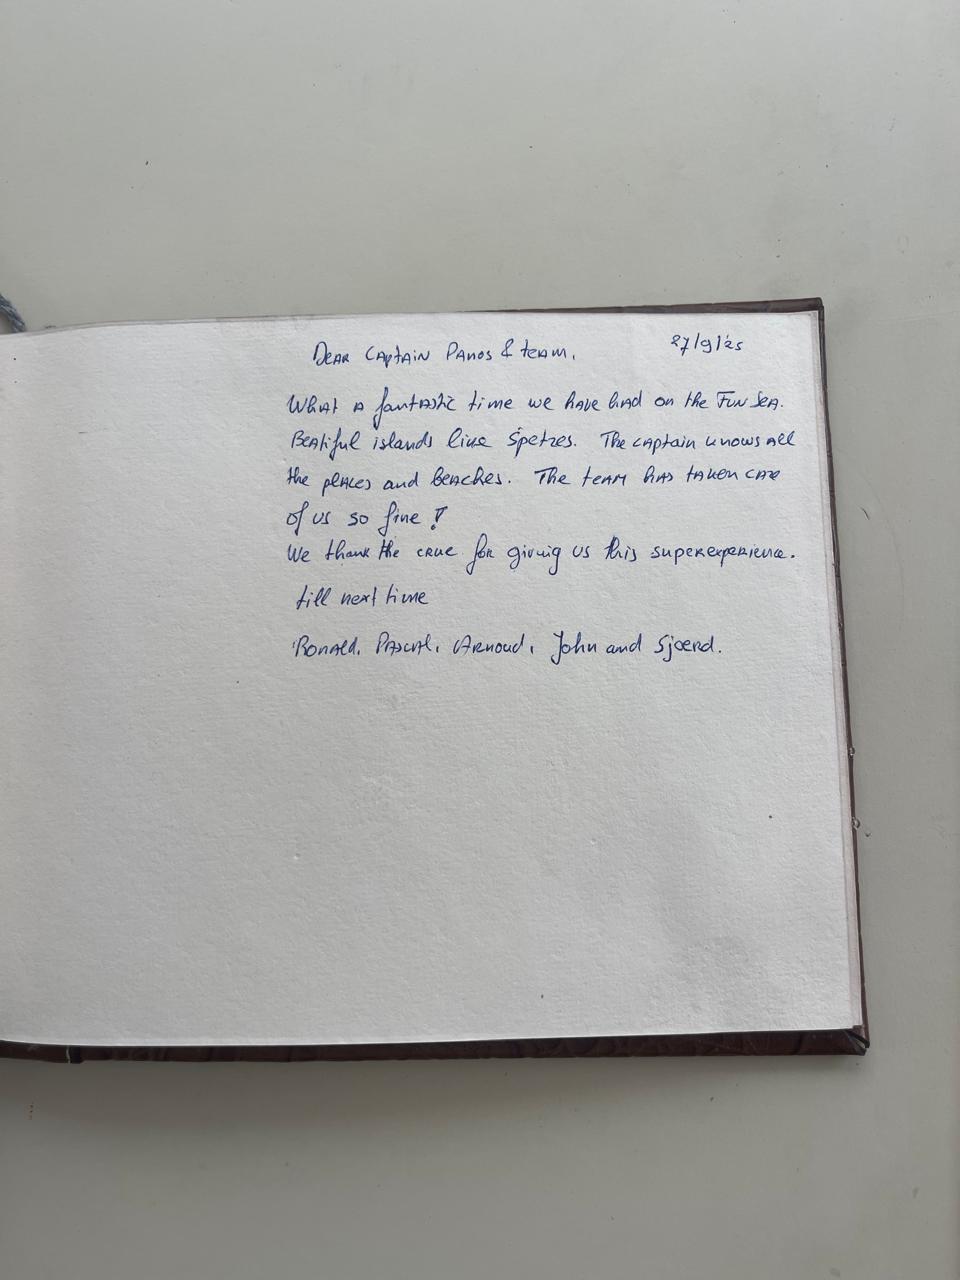 Dear Captain Panos & team,
27/9/25
What a fantastic time we have had on the Fun Sea.
Beatiful islands like Spetzes. The captain knows all
the places and beaches. The team has taken care
of us so fine!
We thank the crue for giving us this superexperience.
till next time
Ronald, Pascal, Arnoud, John and Sjoerd.